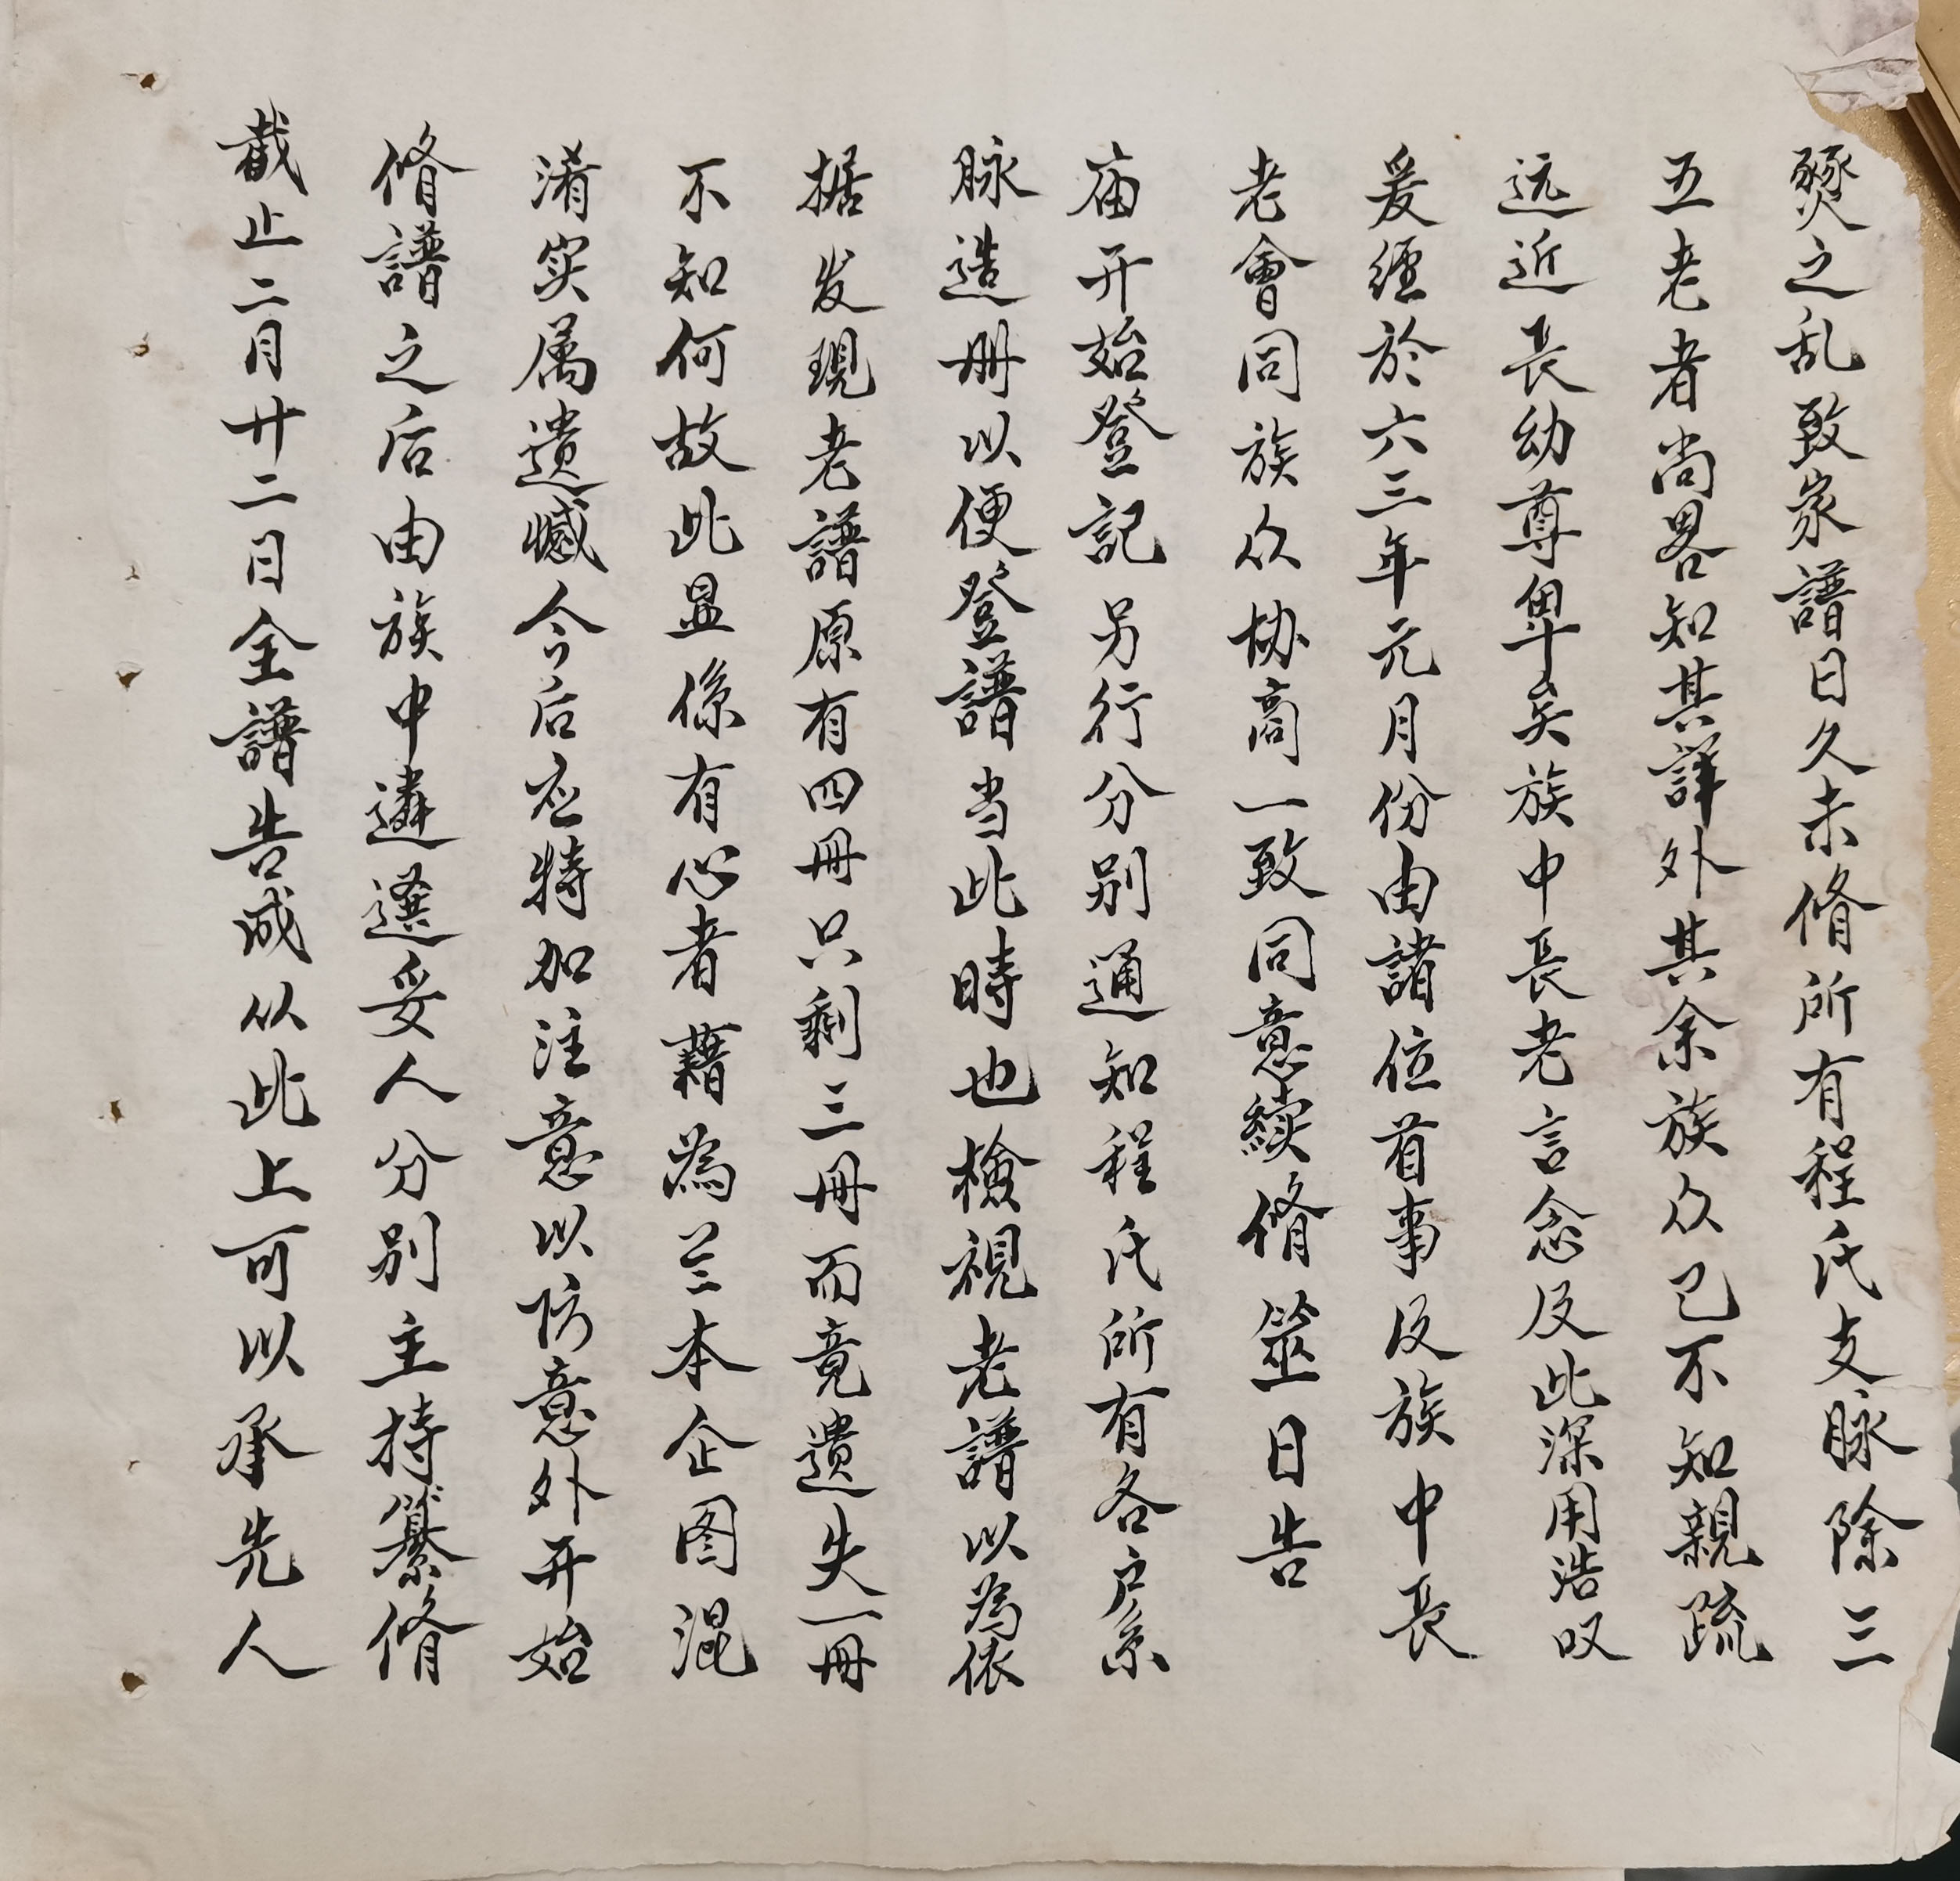 燹之乱致家譜日久未脩所有程氏支脉除三
五老者尚畧知其詳外其余族众已不知親疏
远近長幼尊卑矣族中長老言念及此深用浩叹
爰經於六三年元月份由諸位首事及族中長
老會同族众协商一致同意續脩筮日告
庙开始登記另行分别通知程氏所有各户系
脉造册以便登譜当此時也檢視老譜以為依
据发現老譜原有四冊只剩三冊而竟遗失一冊
不知何故此显係有心者藉為兰本企图混
淆实属遗憾今后应特加注意以防意外开始
脩譜之后由族中遴選妥人分别主持纂脩
截止二月廿二日全譜告成从此上可以承先人